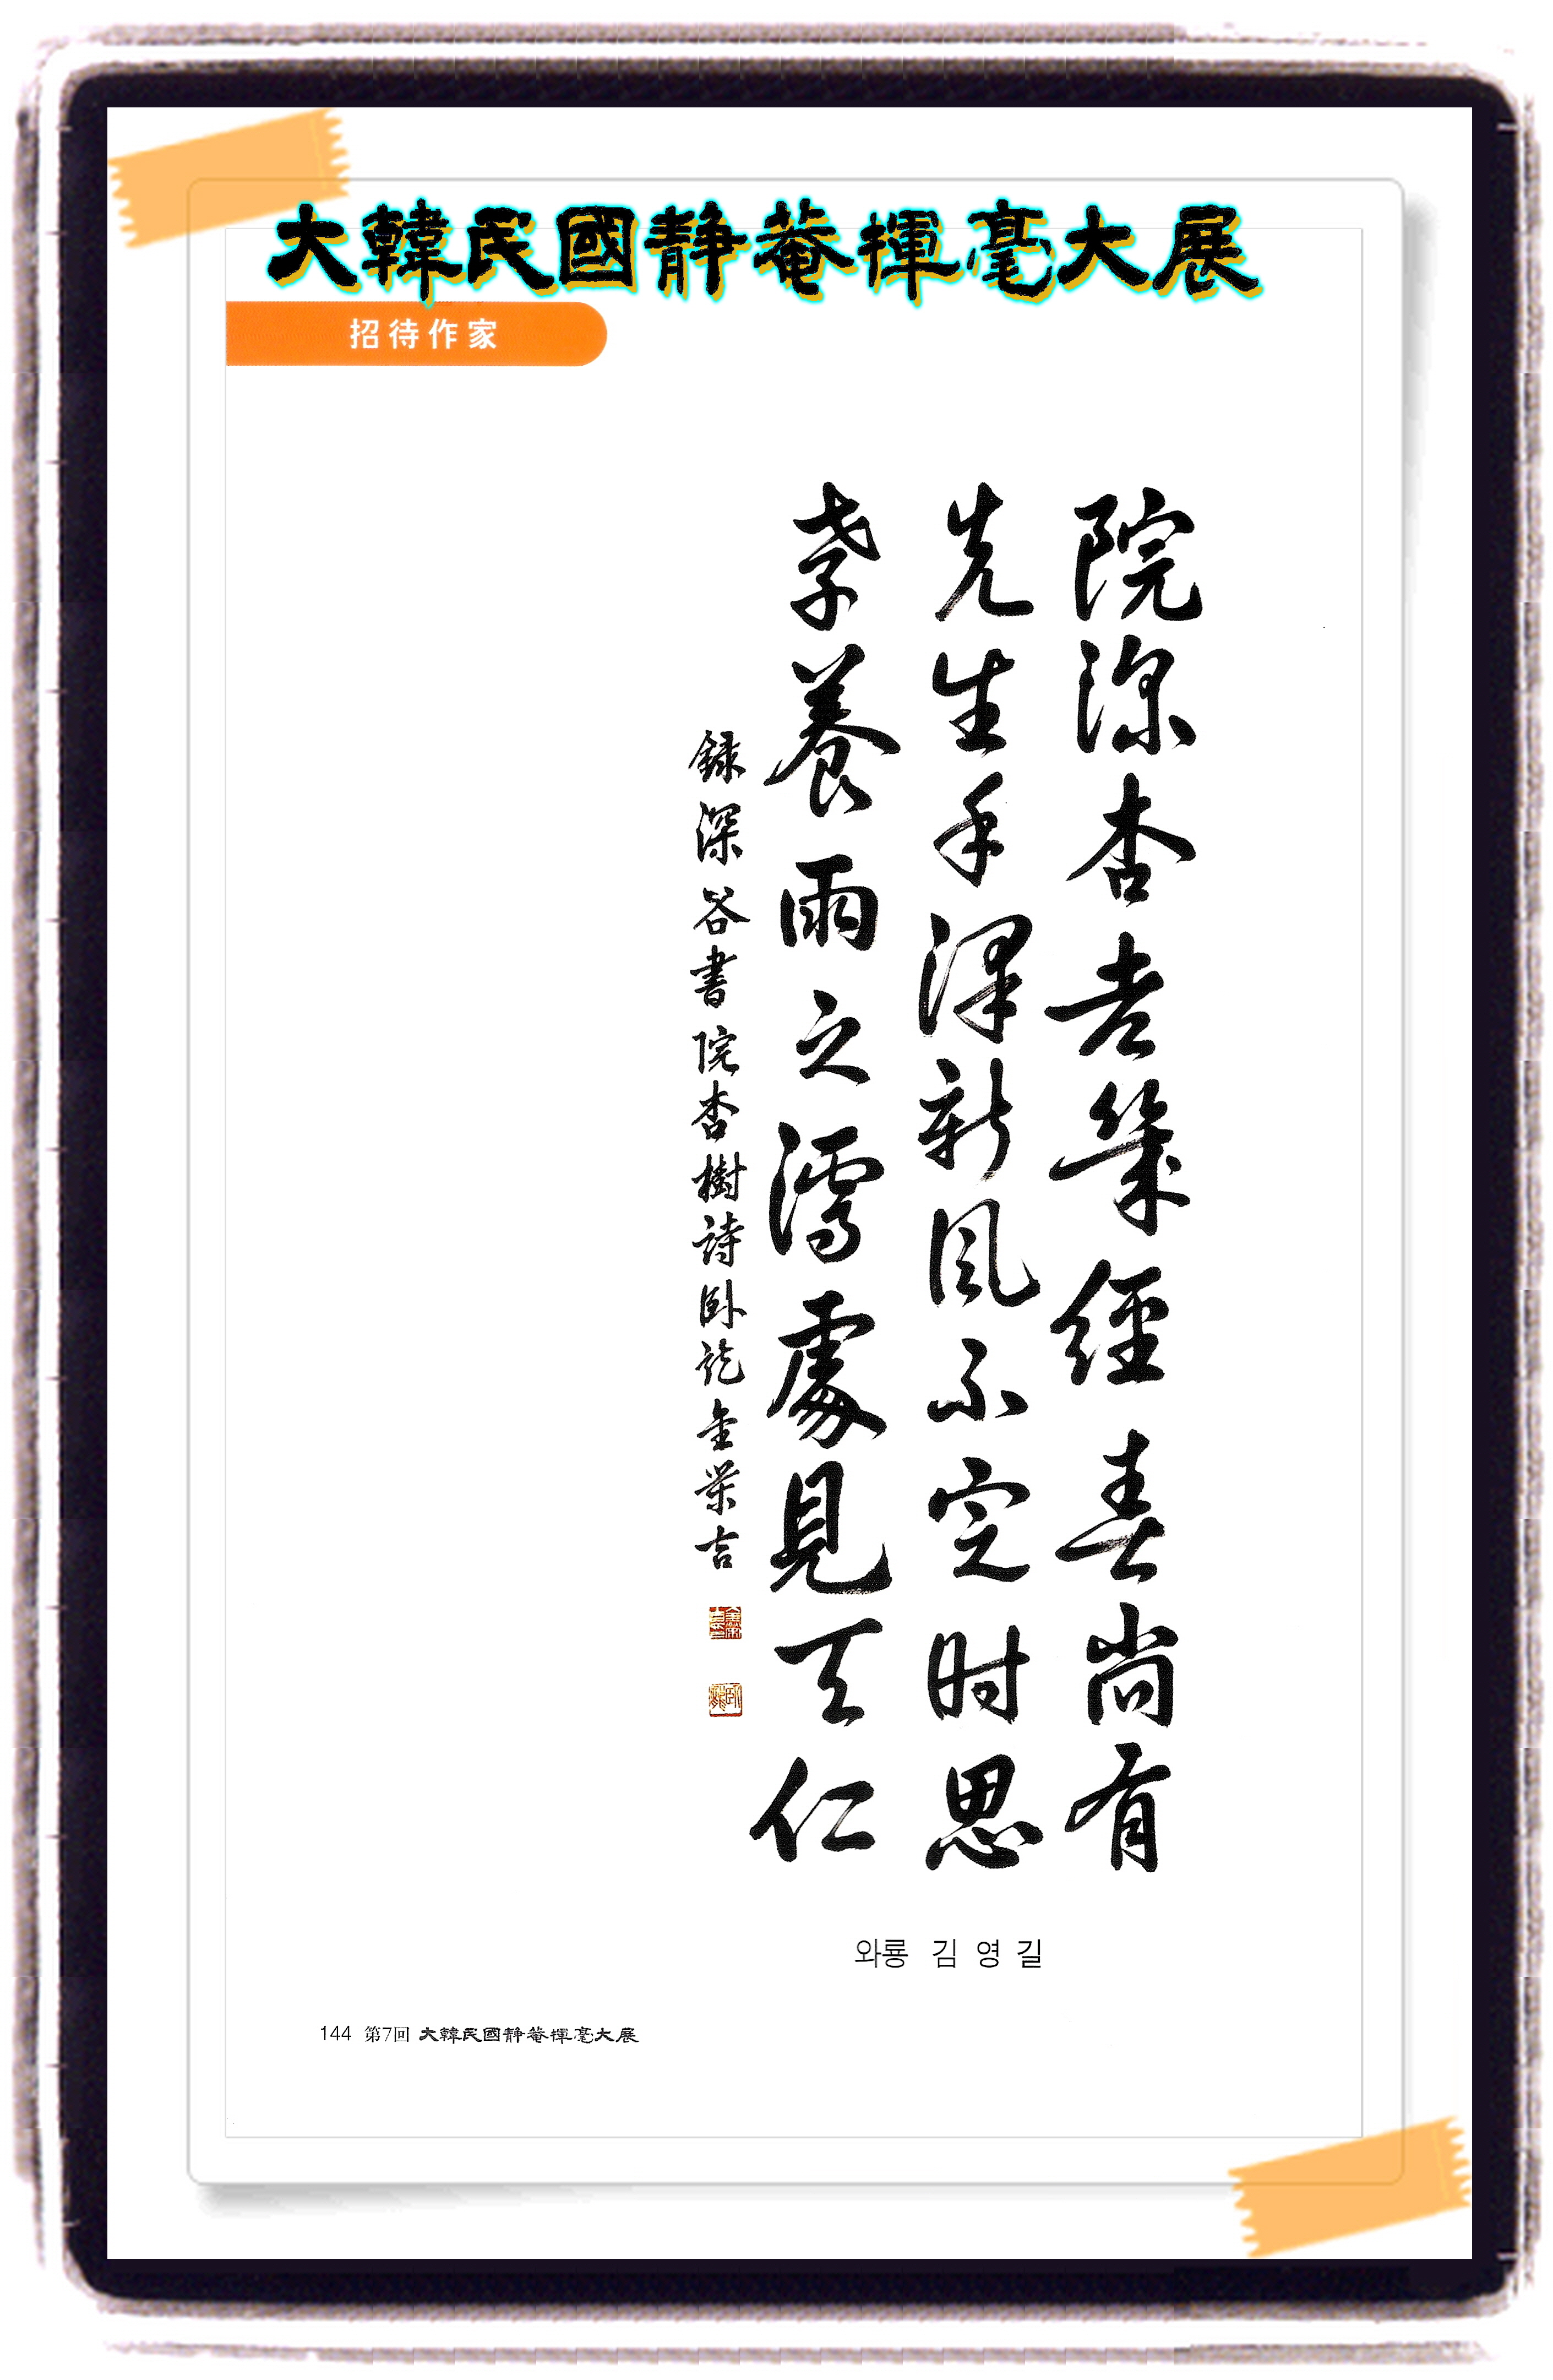 大韓民國靜菴揮毫大展
招待作家
院深杏老幾經春尚有
先生手澤新風不定時思
孝養雨之濡處見天仁
錄深谷書院杏樹詩臥龍金榮吉
와룡 김 영 길
144 第7回 大韓民國靜菴揮毫大展